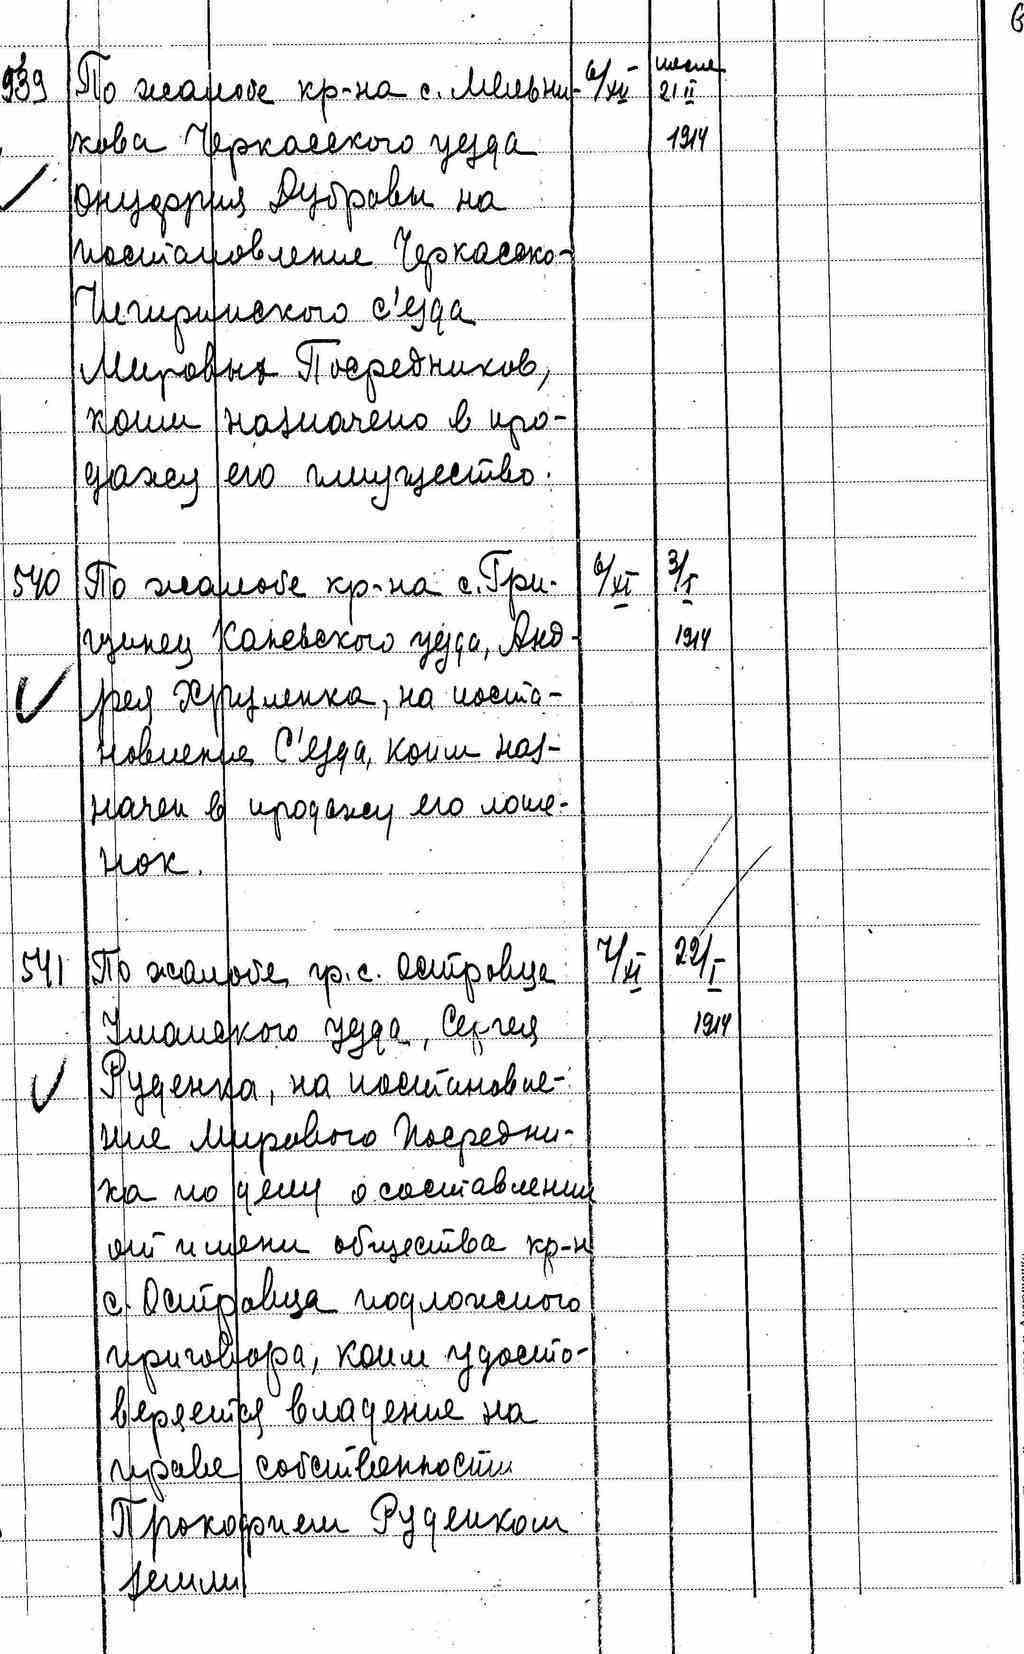 539 По жалобе кр-на с. Мельни- 6/XII июля 21 II
кова Черкасского уезда 1914
Онуфрия Дубравы на
постановление Черкасско-
Чигиринского с'езда
Мировых Посредников,
коим назначено в про-
дажу его имущество.
540 По жалобе кр-на с. Гри- 6/XI 3/I
щинец Каневского уезда, Анд- 1914
рея Хруленка, на поста-
новление С'езда, коим наз-
начен в продажу его лоше-
нок.
541 По жалобе гр. с. Островца 7/XI 22/I
Уманского уезда, Сергея 1914
Руденка, на постановле-
ние Мирового Посредни-
ка по делу о составлении
от имени общества кр-н
с. Островца подложного
приговора, коим удосто-
веряется владение на
праве собственности
Прокофием Руденком
земли